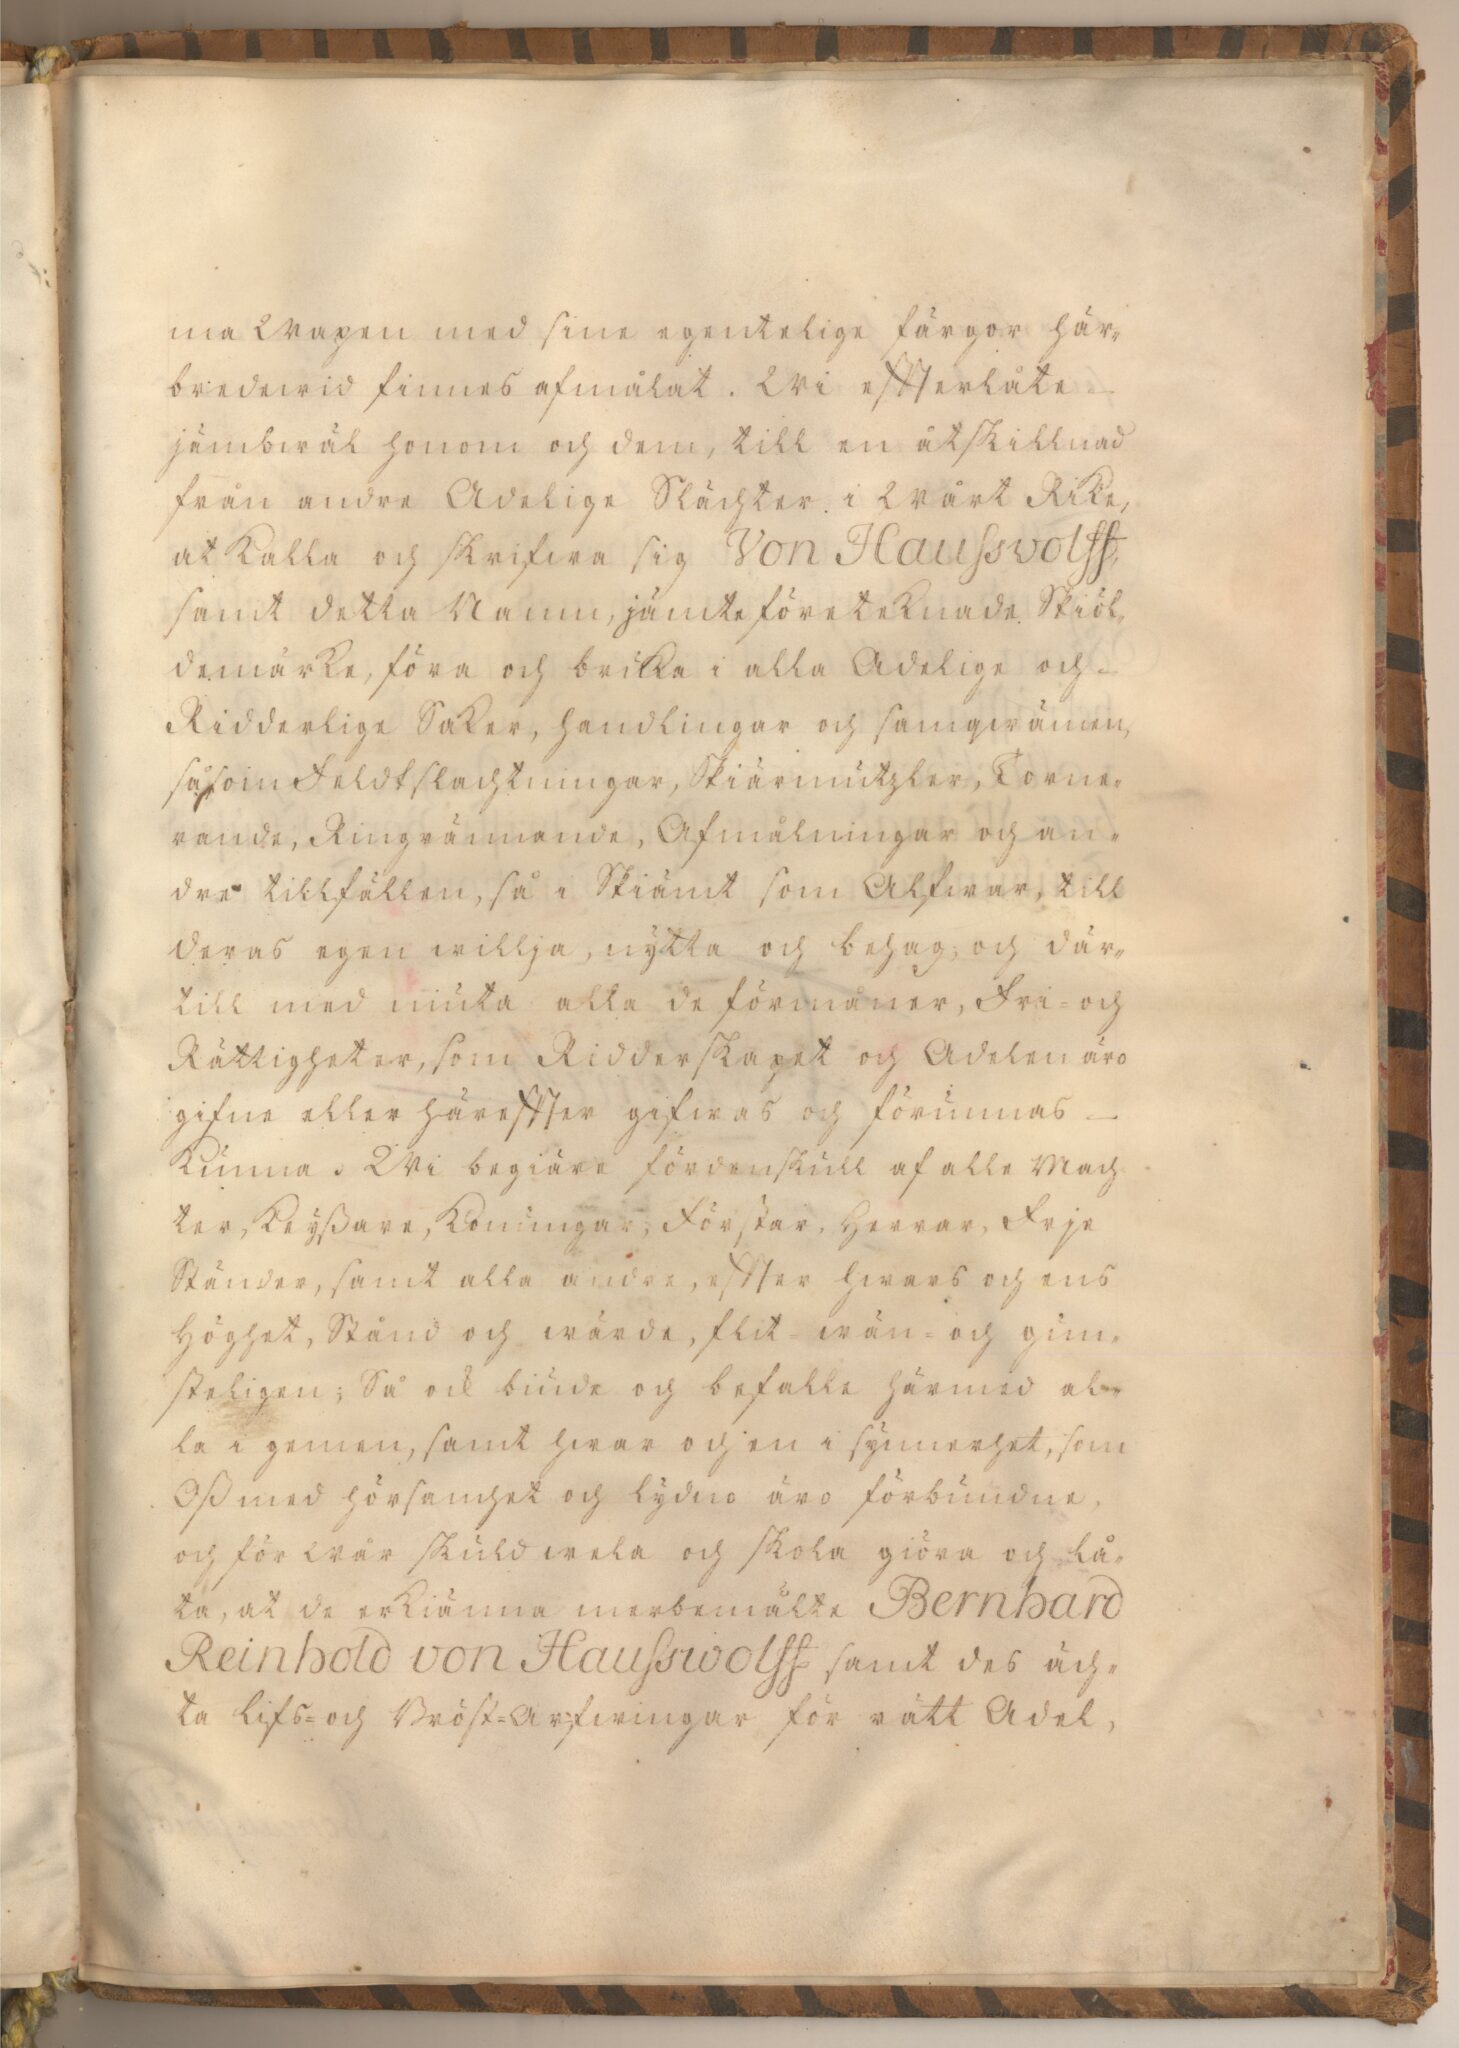 ma Wapen med sine egentelige färgor här-
bredewid finnes afmålat. Wi effterlåte
jämbwäl honom och dem, till en åtskillnad
från andre Adelige Slächter i Wårt Rike,
at Kalla och skrifwa sig Von Hausswolff,
samt detta Namn, jämte företeknade Skiöl-
demärke, föra och bruka i alla Adelige och
Ridderlige Saker, handlingar och samqwämen,
såsom Feldtslachtningar, Skiärmützler, Torne-
rande, Ringrännande, Afmålningar och an-
dre tillfällen, så i Skiämt som Alfwar, till
deras egen willja, nytta och behag; och där-
till med niuta alla de förmåner, Fri- och
Rättigheter, som Ridderskapet och Adelen äro
gifne eller häreffter gifwas och förunnas
Kunna. Wi begiäre fördenskull af alle Mach
ter, Keyßare, Konungar, Förstar, Herrar, Frje
Ständer, samt alla andre, effter hwars och ens
Höghet, Stånd och wärde, flit- wän- och gun-
steligen; Så ock biude och befalle härmed al-
la i gemen, samt hwar och en i synnerhet, som
Oß med hörsamhet och lydno äro förbundne,
och för Wår skuld wela och skola giöra och lå-
ta, at de erKiänna merbemälte Bernhard
Reinhold von Hausswolff samt des äch-
ta Lifs- och Bröst-Arfwingar för rätt Adel,